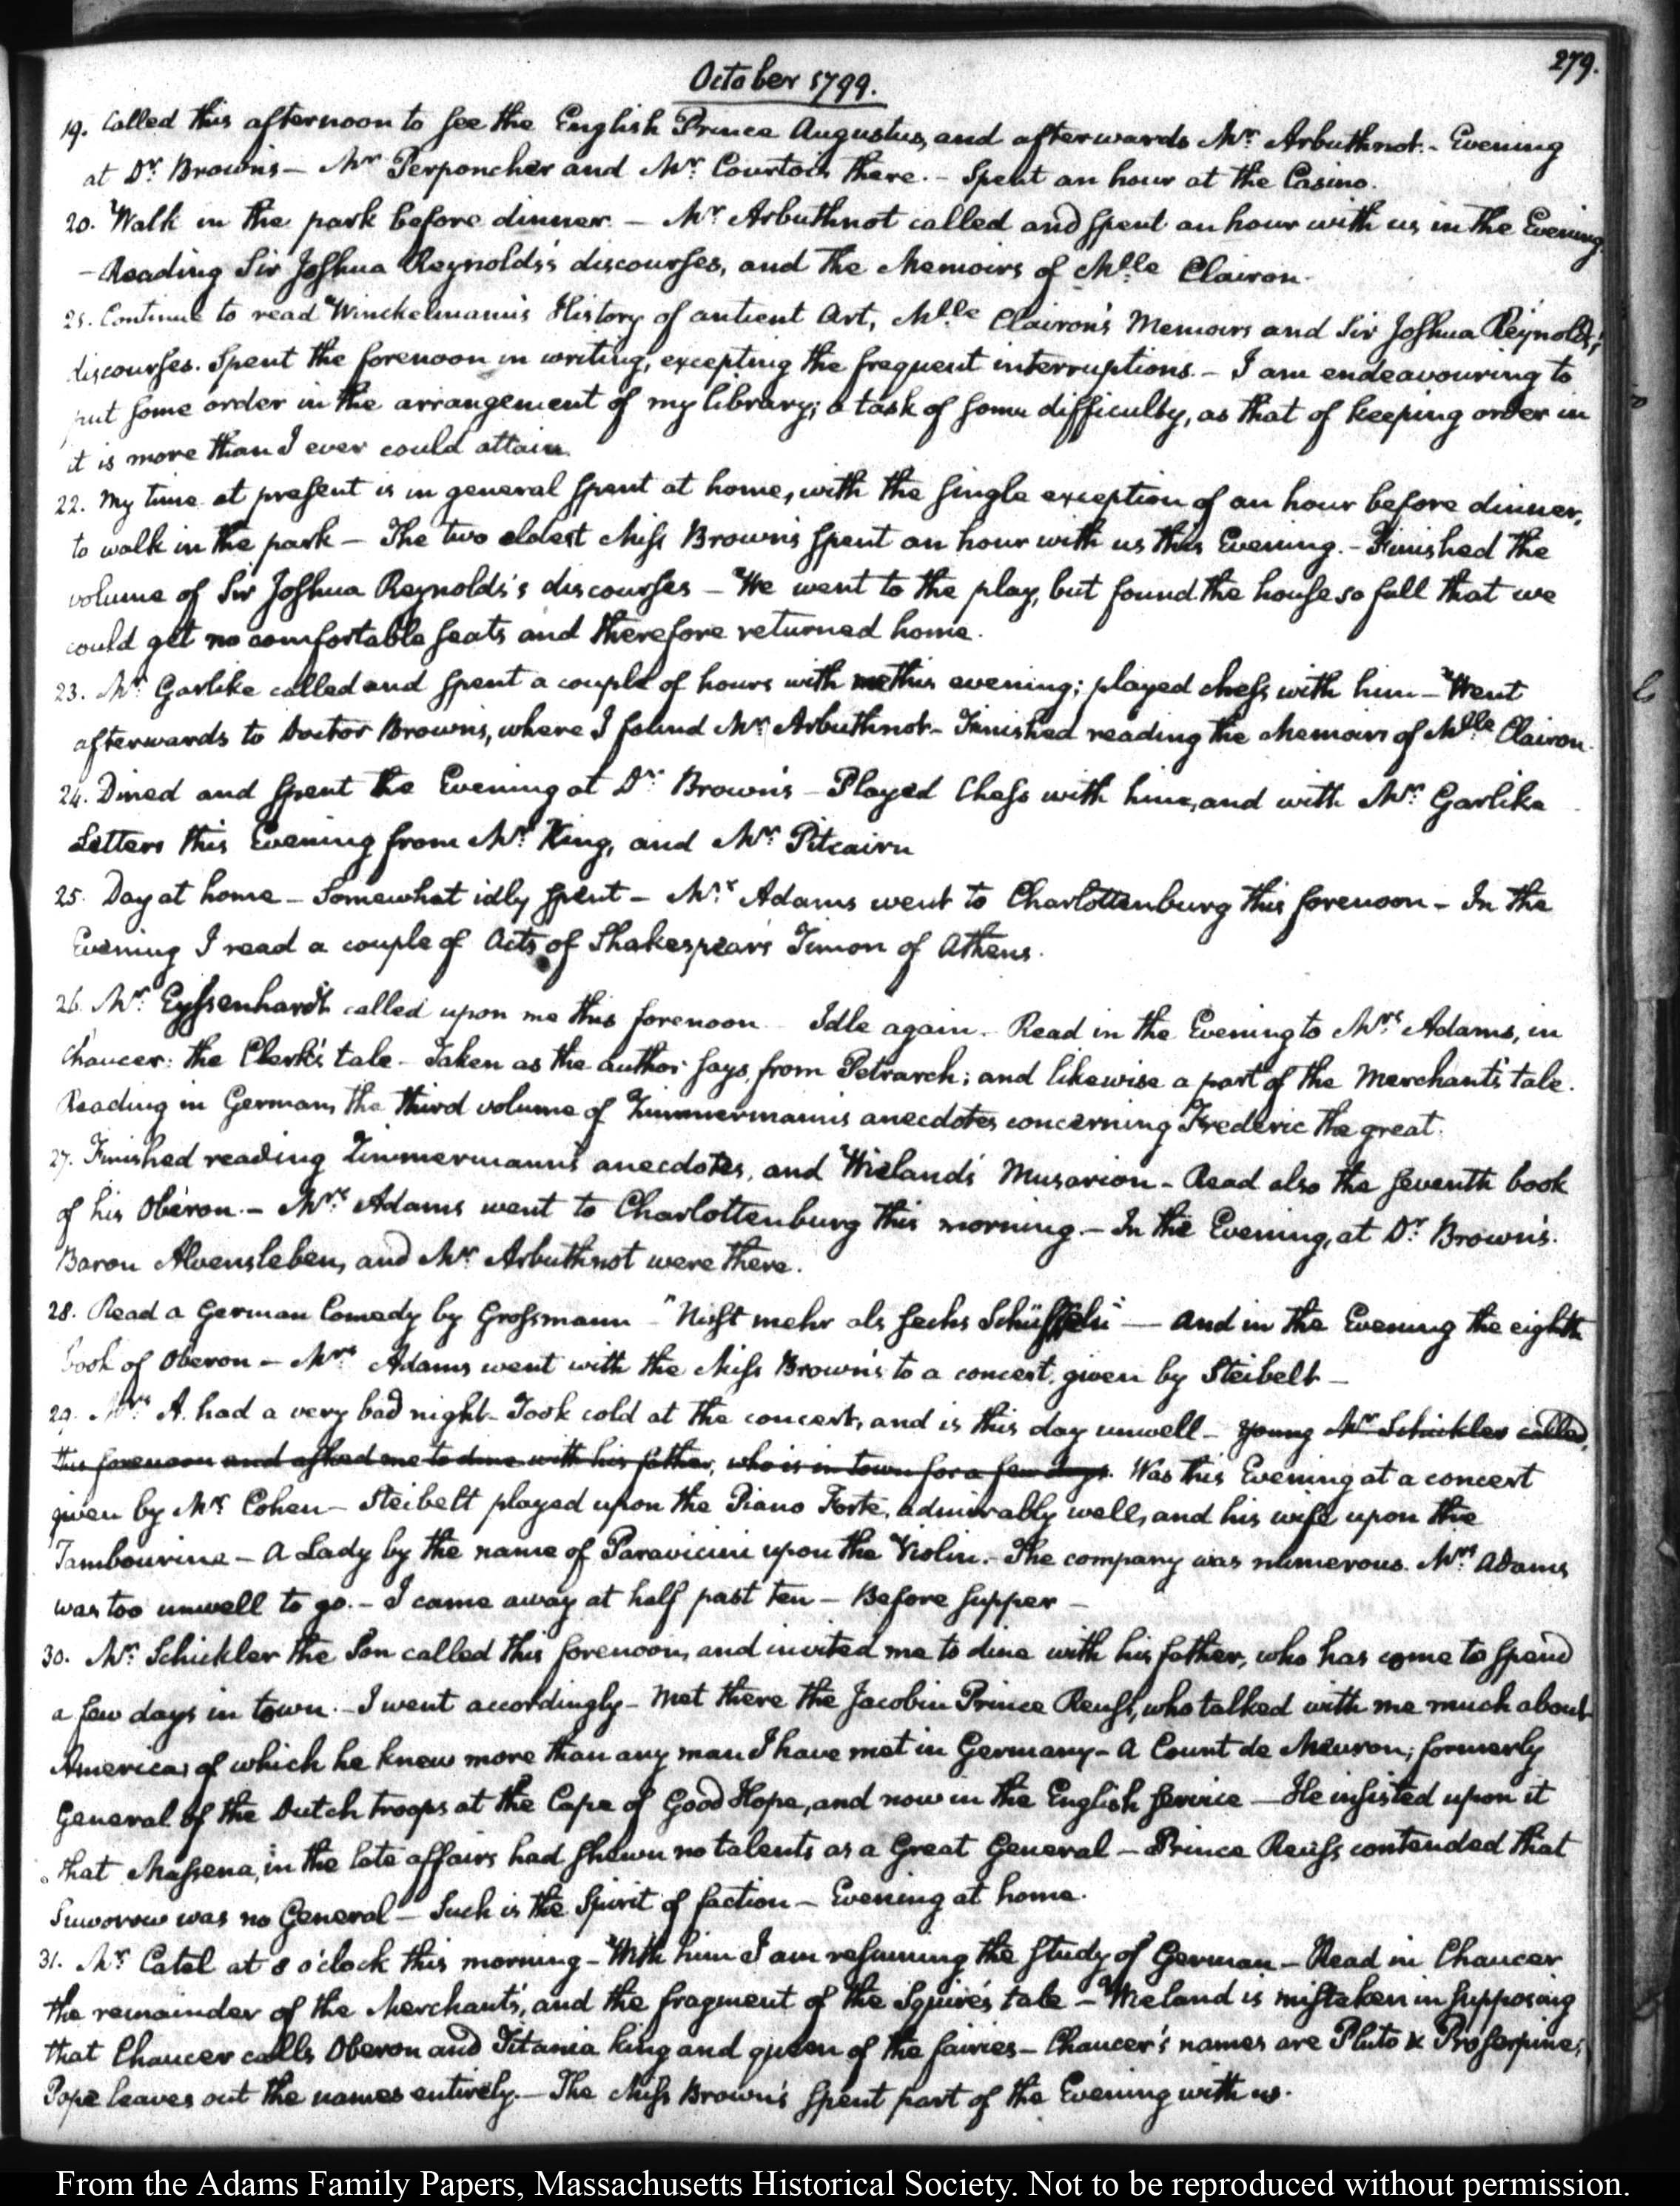 279.
October 1799.
19. Called this afternoon to see the English Prince Augustus, and afterwards Mr. Arbuthnot. - Evening
at Dr. Brown's - Mr Perponcher and Mr. Courtois there. - Spent an hour at the Casino.
20. Walk in the park before dinner - Mr Arbuthnot called and spent an hour with us in the Evening.
- Reading Sir Joshua Reynolds's discourses, and the Memoirs of Mlle Clairon.
21. Continue to read Winckelmann's History of antient Art, Mlle Clairon's Memoirs and Sir Joshua Reynolds's
discourses. Spent the forenoon in writing, excepting the frequent interruptions. - I am endeavouring to
put some order in the arrangement of my library; a task of some difficulty, as that of keeping order in
it is more than I ever could attain.
22. My time at present is in general spent at home, with the single exception of an hour before dinner,
to walk in the park - The two eldest Miss Brown's spent an hour with us this Evening. - Finished the
volume of Sir Joshua Reynolds's discourses - We went to the play, but found the house so full that we
could get no comfortable seats and therefore returned home.
23. Mr. Garlike called and spent a couple of hours with me this evening; played chess with him - Went
afterwards to Doctor Brown's, where I found Mr. Arbuthnot - Finished reading the Memoirs of Mlle Clairon.
24. Dined and spent the Evening at Dr. Brown's - Played Chess with him, and with Mr. Garlike
Letters this Evening from Mr. King, and Mr. Pitcairn
25. Day at home - Somewhat idly spent - Mrs. Adams went to Charlottenburg this forenoon - In the
Evening I read a couple of Acts of Shakespear's Timon of Athens.
26. Mr. Eyssenhardt called upon me this forenoon - Idle again. Read in the Evening to Mrs. Adams, in
Chaucer: the Clerk's tale - Taken as the author says, from Petrarch; and likewise a part of the Merchant's tale.
Reading in German, the third volume of Zimmermann's anecdotes concerning Frederic the great.
27. Finished reading Zimmermann's anecdotes, and Wieland's Musarion - Read also the seventh book
of his Oberon. - Mrs. Adams went to Charlottenburg this morning. - In the Evening, at Dr. Brown's.
Baron Alvensleben, and Mr Arbuthnot were there.
28. Read a German Comedy by Grossmann - "Nicht mehr als sechs Schüsseln" - And in the Evening the eighth
book of Oberon - Mrs. Adams went with the Miss Brown's to a concert, given by Steibelt -
29. Mrs. A. had a very bad night - Took cold at the concert, and is this day unwell - Young Mr Schickler called,
this forenoon and asked me to dine with his father, who is in town for a few days. Was this Evening at a concert
given by Mr. Cohen - Steibelt played upon the Piano Forte, admirably well, and his wife upon the
Tambourine - A Lady by the name of Paravicini upon the Violin. - The company was numerous. Mrs. Adams
was too unwell to go. - I came away at half past ten - Before supper -
30. Mr. Schickler the Son called this forenoon, and invited me to dine with his father, who has come to spend
a few days in town. - I went accordingly - Met there the Jacobin Prince Reuss, who talked with me much about
America, of which he knew more than any man I have met in Germany - A Count de Meuron, formerly
General of the Dutch troops at the Cape of Good Hope, and now in the English service - He insisted upon it
that Massena, in the late affairs had shewn no talents as a Great General - Prince Reuss contended that
Suworow was no General - Such is the Spirit of faction - Evening at home.
31. Mr Catel at 8 o'clock this morning - With him I am resuming the study of German - Read in Chaucer
the remainder of the Merchant's, and the fragment of the Squire's tale - Wieland is mistaken in supposing
that Chaucer calls Oberon and Titania king and queen of the fairies - Chaucer's names are Pluto & Proserpine;
Pope leaves out the names entirely. - The Miss Brown's spent part of the Evening with us.
From the Adams Family Papers, Massachusetts Historical Society. Not to be reproduced without permission.